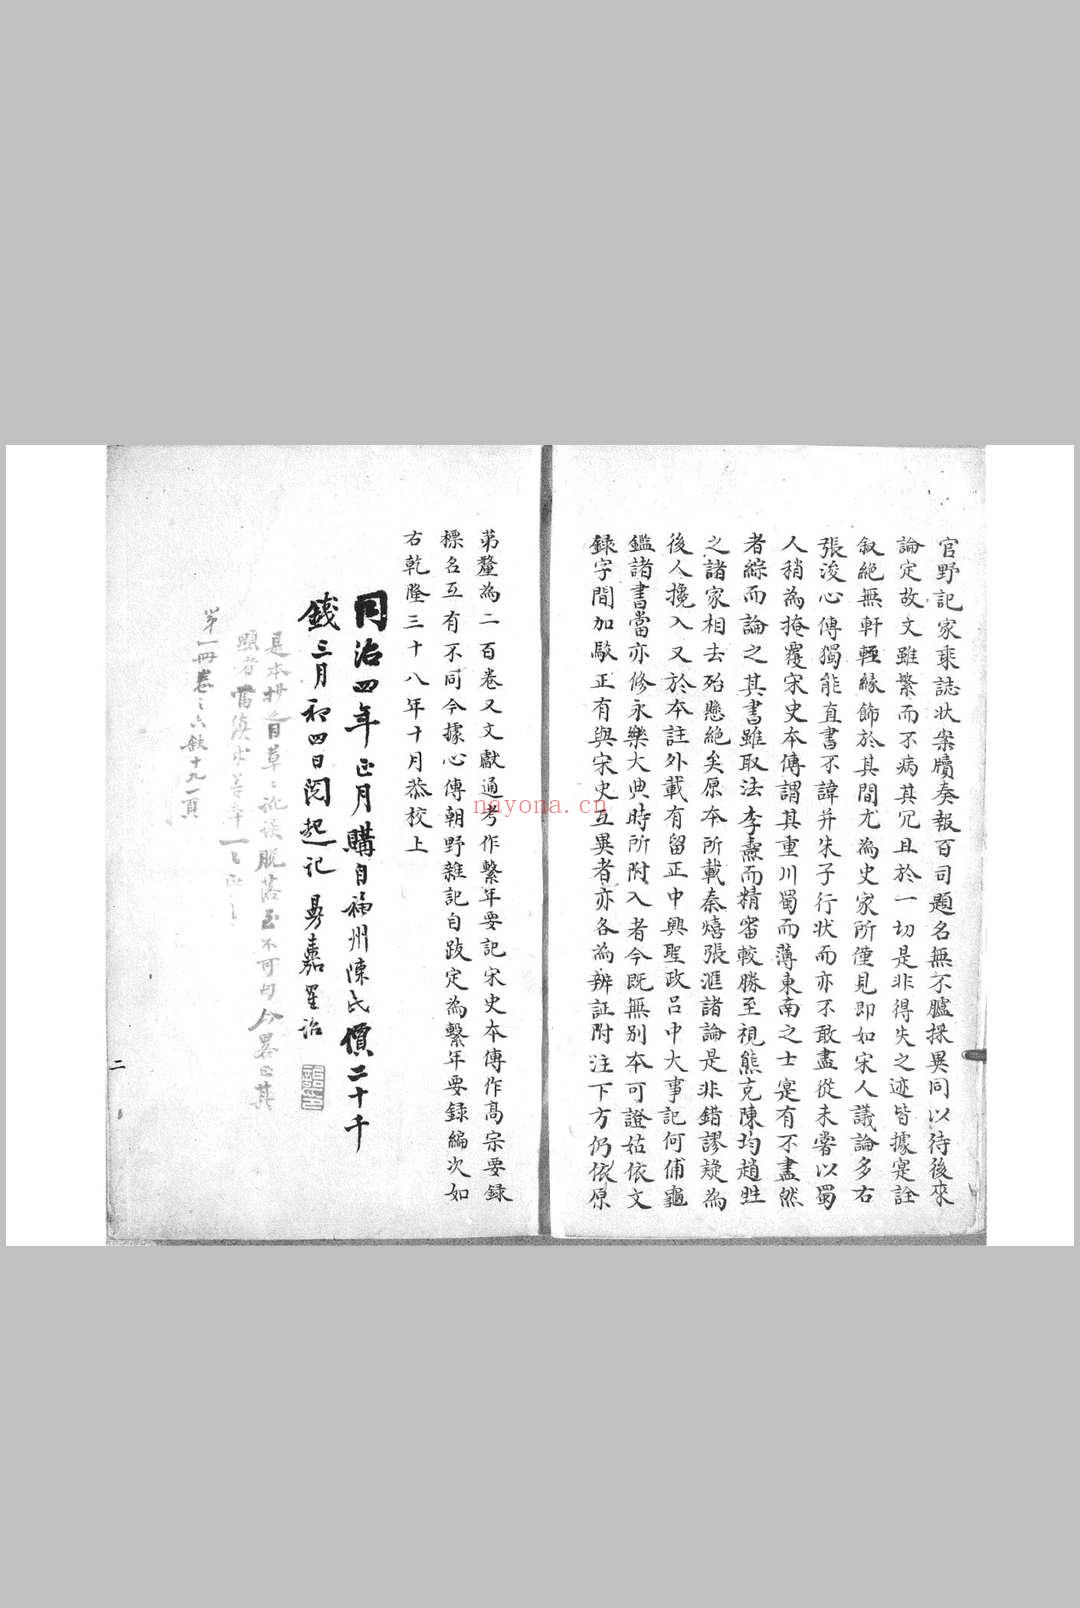 官野記家乘誌狀案牘奏報百司題名無不臚採異同以待後來
論定故文雖繁而不病其冗且於一切是非得失之迹皆據寔詮
叙絕無軒輊緣飾於其間尤為史家所僅見即如宋人議論多右
張浚心傳獨能直書不諱并朱子行狀而亦不敢盡從未嘗以蜀
人稍為掩覆宋史本傳謂其重川蜀而薄東南之士寔有不盡然
者綜而論之其書雖取法李燾而精審較勝至視熊克陳均趙甡
之諸家相去殆懸絕矣原本所載秦熺張滙諸論是非錯謬疑為
後人攙入又於本註外載有留正中興聖政呂中大事記何俌龜
鑑諸書當亦修永樂大典時所附入者今既無別本可證姑依文
録字間加歐正有與宋史互異者亦各為辨証附注下方仍依原
第釐為二百卷又文獻通考作繫年要記宋史本傳作高宗要録
標名互有不同今據心傳朝野雜記自跋定為繫年要録編次如
右乾隆三十八年十月恭校上
同治四年正月購自福州陳氏價二十千
錢三月初四日閱起記 嘉 詒
是本抄 草 脫落 不可 今畧正其
顯者當
第一冊卷之六缺十九一頁
二
nayona.cn